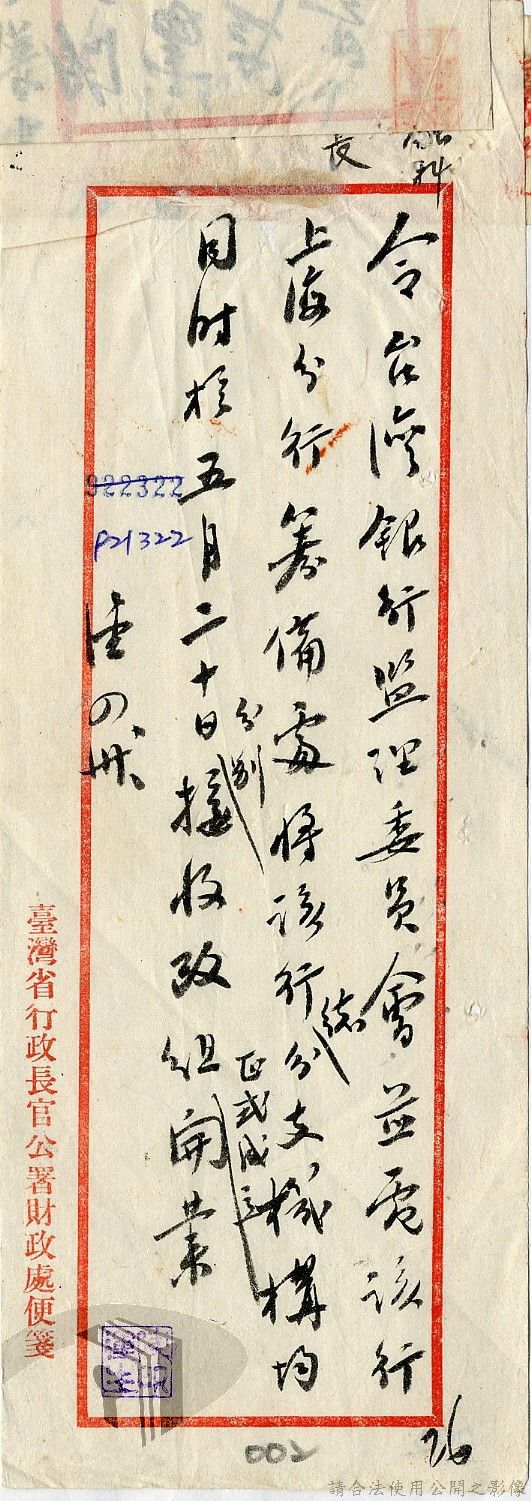 科
長
令台湾銀行监理委员會並電该行
上海分行筹備處将该行總分支機構均
同时於五月二十日分别接收改组正式成立開業
922322
P21322
四
臺灣省行政長官公署財政處便箋
002
26
請合法使用公開之影像